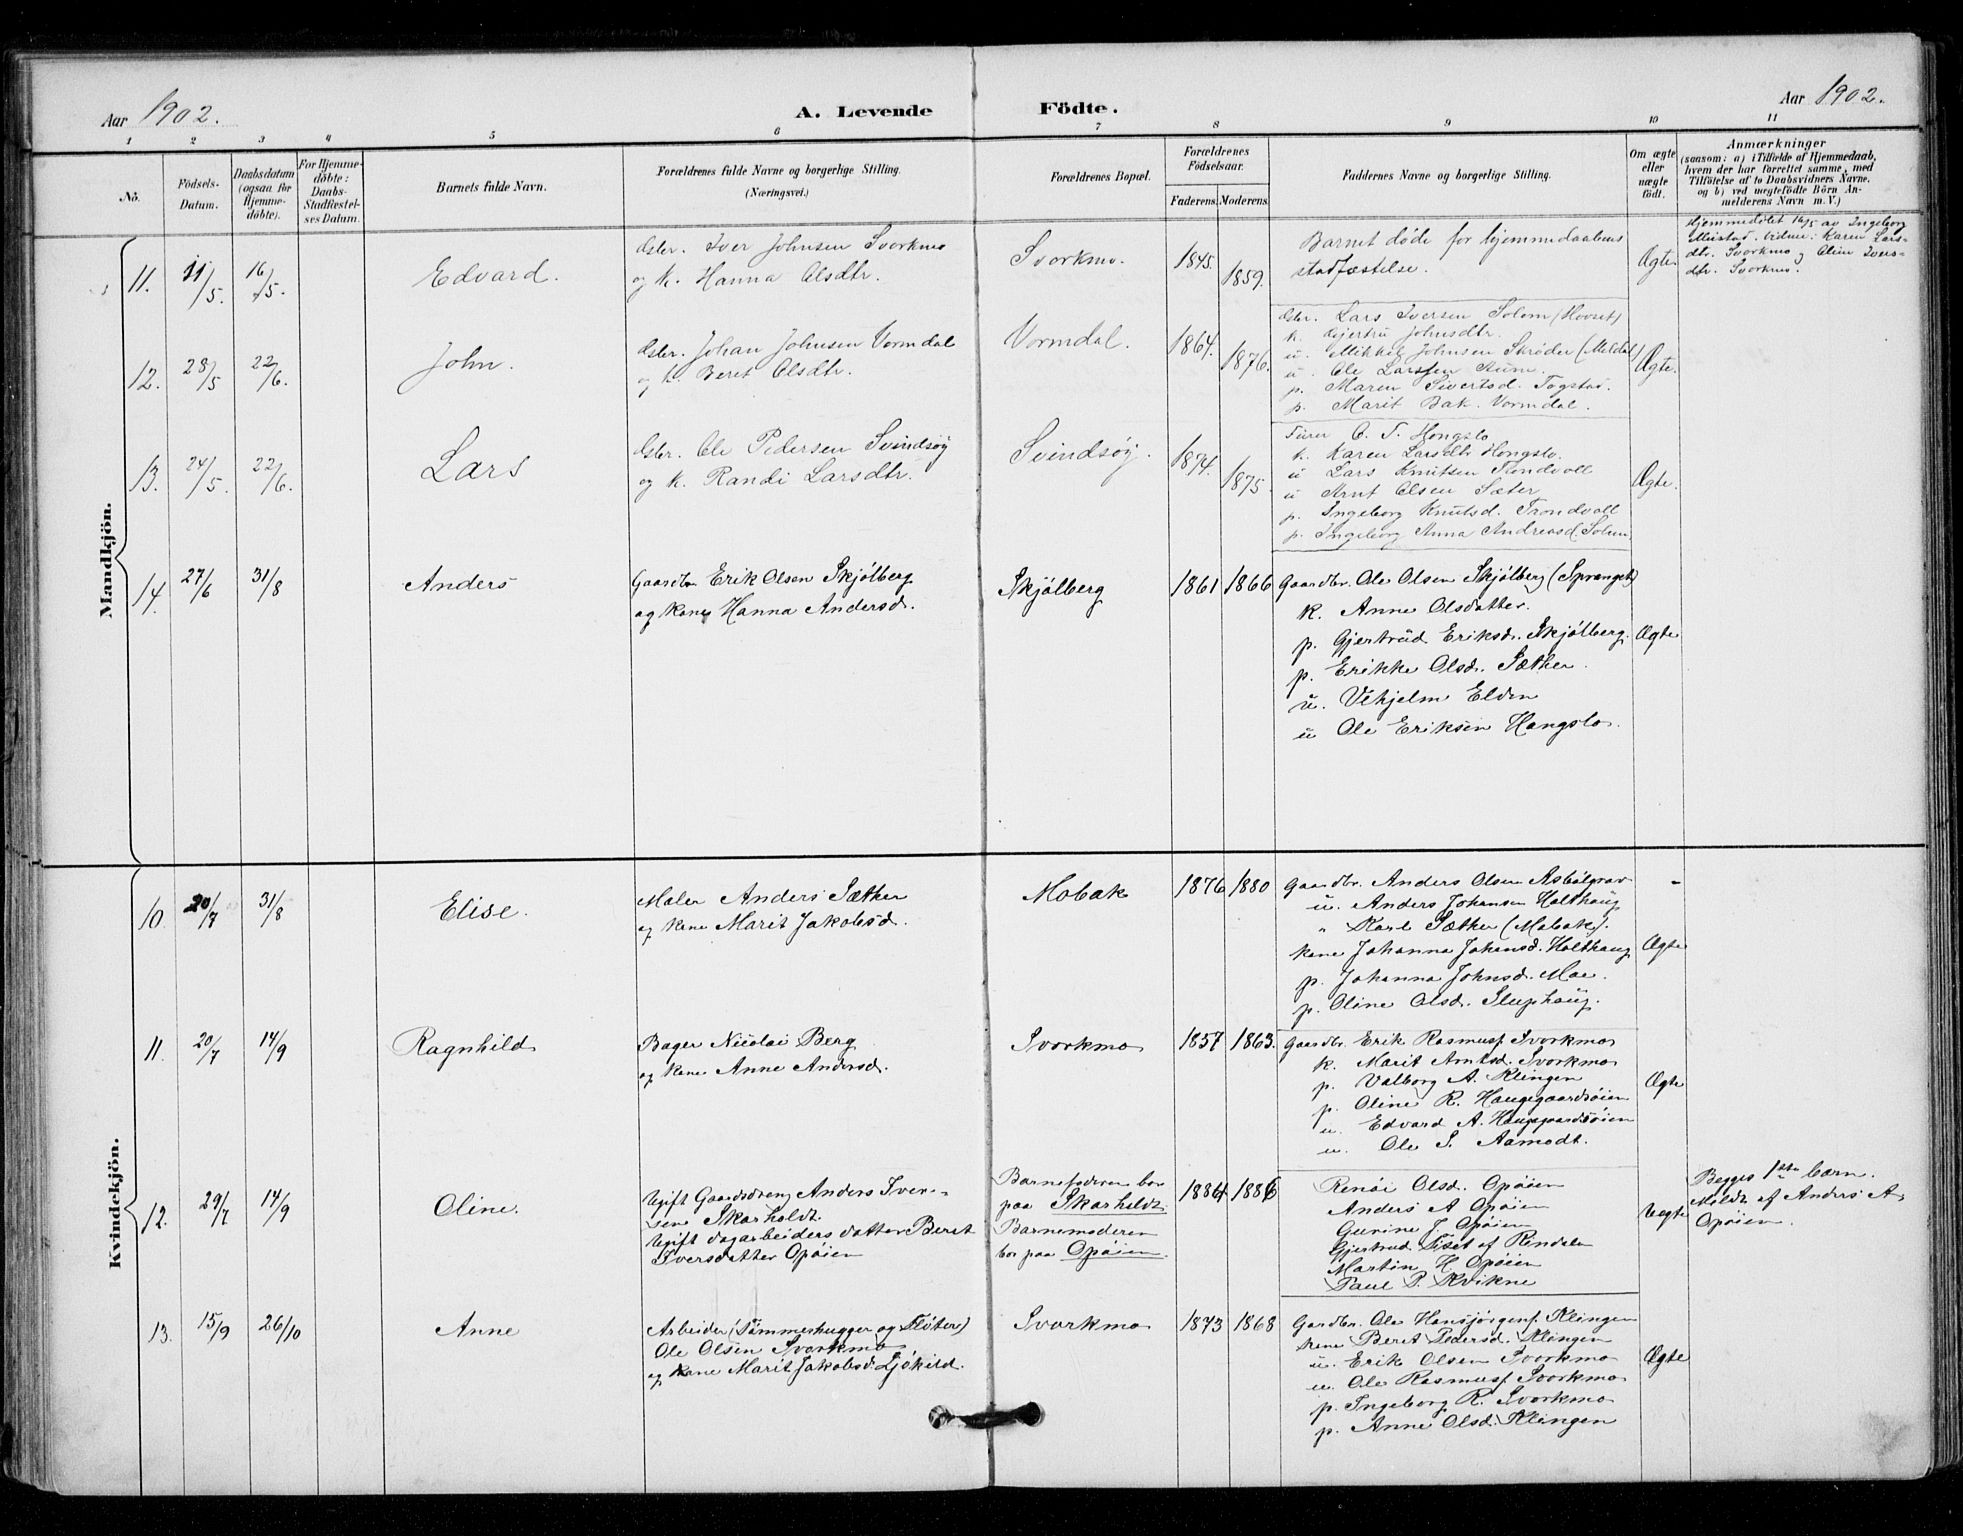 Aar 1902.
A. Levende Födte.
Aar 1902.
1 2 3 4 5 6 7 8 9 10 11
No.
Födsels-Datum.
Daabsdatum (ogsaa for Hjemme-döbte).
For Hjemme-döbte: Daabs-Stadfæstel-ses Datum.
Barnets fulde Navn.
Forældrenes fulde Navne og borgerlige Stilling.
(Næringsvei.)
Forældrenes Bopæl.
Forældrenes Födselsaar.
Faderens. Moderens.
Faddernes Navne og borgerlige Stilling.
Om ægte eller uægte födt.
Anmærkninger
(saasom: a) i Tilfælde af Hjemmedaab,
hvem der har forrettet samme, med
Tilföielse af to Daabsvidners Navne.
og b) ved uægtefödte Börn An-
melderens Navn m. V.)
Mandkjön.
11. 11/5. 16/5. Edvard.
Gbr. Iver Johnsen Svorkmo
og k. Hanna Olsdtr.
Svorkmo. 1845. 1859.
Barnet døde før hjemmedaabens
stadfæstelse.
Ægte.
Hjemmedøbt 16/5 av Ingeborg
Meistad. Vidne: Karen Lars-
dtr. Svorkmo og Oline Ivers-
dtr. Svorkmo.
12. 28/5 22/6. John.
Gbr. Johan Johnsen Vormdal
og k. Beret Olsdtr.
Vormdal. 1864. 1876.
Gbr. Lars Iversen Solem (Hovset)
k. Gjertru Johnsdtr.
u. Mikkel Johnsen Skrøder (Meldal)
u. Ole Larssen
p. Maren Sivertsd. Togstad.
p. Marit Bak. Vormdal.
Ægte.
13. 24/5. 22/6. Lars
Gbr. Ole Pedersen Svindsøy
og k. Randi Larsdtr.
Svindsøy. 1874. 1875.
O. T. Hongslo
k. Karen Larsdtr Hongslo.
u Lars Knutsen Trondvoll
u Arnt Olsen Sæter
p. Ingeborg Knutsd. Trondvoll
p. Ingeborg Anna Andreasd. Solem
Ægte.
14. 27/6 31/8 Anders
Gaardbr. Erik Olsen Skjølberg
og kone Hanna Andersd.
Skjølberg 1861 1866
Gaardbr. Ole Olsen Skjølberg (Spranget)
k. Anne Olsdatter.
p. Gjertrud Eriksd. Skjølberg.
p. Erikke Olsd. Sæther.
u. Vehjelm Elden
u Ole Eriksen Hangslo.
Ægte
Kvindekjön.
10 20/7 31/8 Elise.
Maler Anders Sæther
og kone Marit Jakobsd.
Mobak 1876 1880
Gaardbr. Anders Olsen Asbølgrav
u. Anders Johansen Holthaug
" Karl Sæther (Mobak).
kone Johanna Johansd. Holthaug
p. Johanna Johnsd. Moe.
p. Oline Olsd. Sluphaug.
Ægte
11. 20/7 14/9 Ragnhild
Bager Nicolai Berg
og kone Anne Andersd.
Svorkmo 1857 1863.
Gaardbr. Erik Rasmusf. Svorkmo
k. Marit Arntsd. Svorkmo
p. Valborg A. Klingen
p. Oline R. Haugegaardsøien
u. Edvard A. Haugegaardsøien
u. Ole S. Aamodt.
Ægte
12. 29/7 14/9 Oline.
Ugift Gaardsdreng Anders Iver-
sen Skarholdt.
Ugift dagarbeiders datter Beret
Iversdatter Opøien
Barnefaderen bor
paa Skarholdt.
Barnemoderen
bor paa Opøien.
1884 1886
Olsd. Opøien
Anders A Opøien
Gurine J. Opøien
Gjertrud Tiset af Rindalen
Martin H Opøien
Paul P. Kvikne
Uegte
Begges 1ste barn.
Meldt af Anders A.
Opøien.
13. 15/9 26/10 Anne
Arbeider (Tømmerhugger og Fløter)
Ole Olsen Svorkmo
og kone Marit Jakobsd.
Svorkmo 1873 1868
Gardbr. Ole Hansjørgenf. Klingen
kone Beret Pedersd. Klingen
u. Erik Olsen Svorkmo
u. Ole Rasmusf Svorkmo
p. Ingeborg R. Svorkmo
p. Anne Olsd. Klingen
Ægte